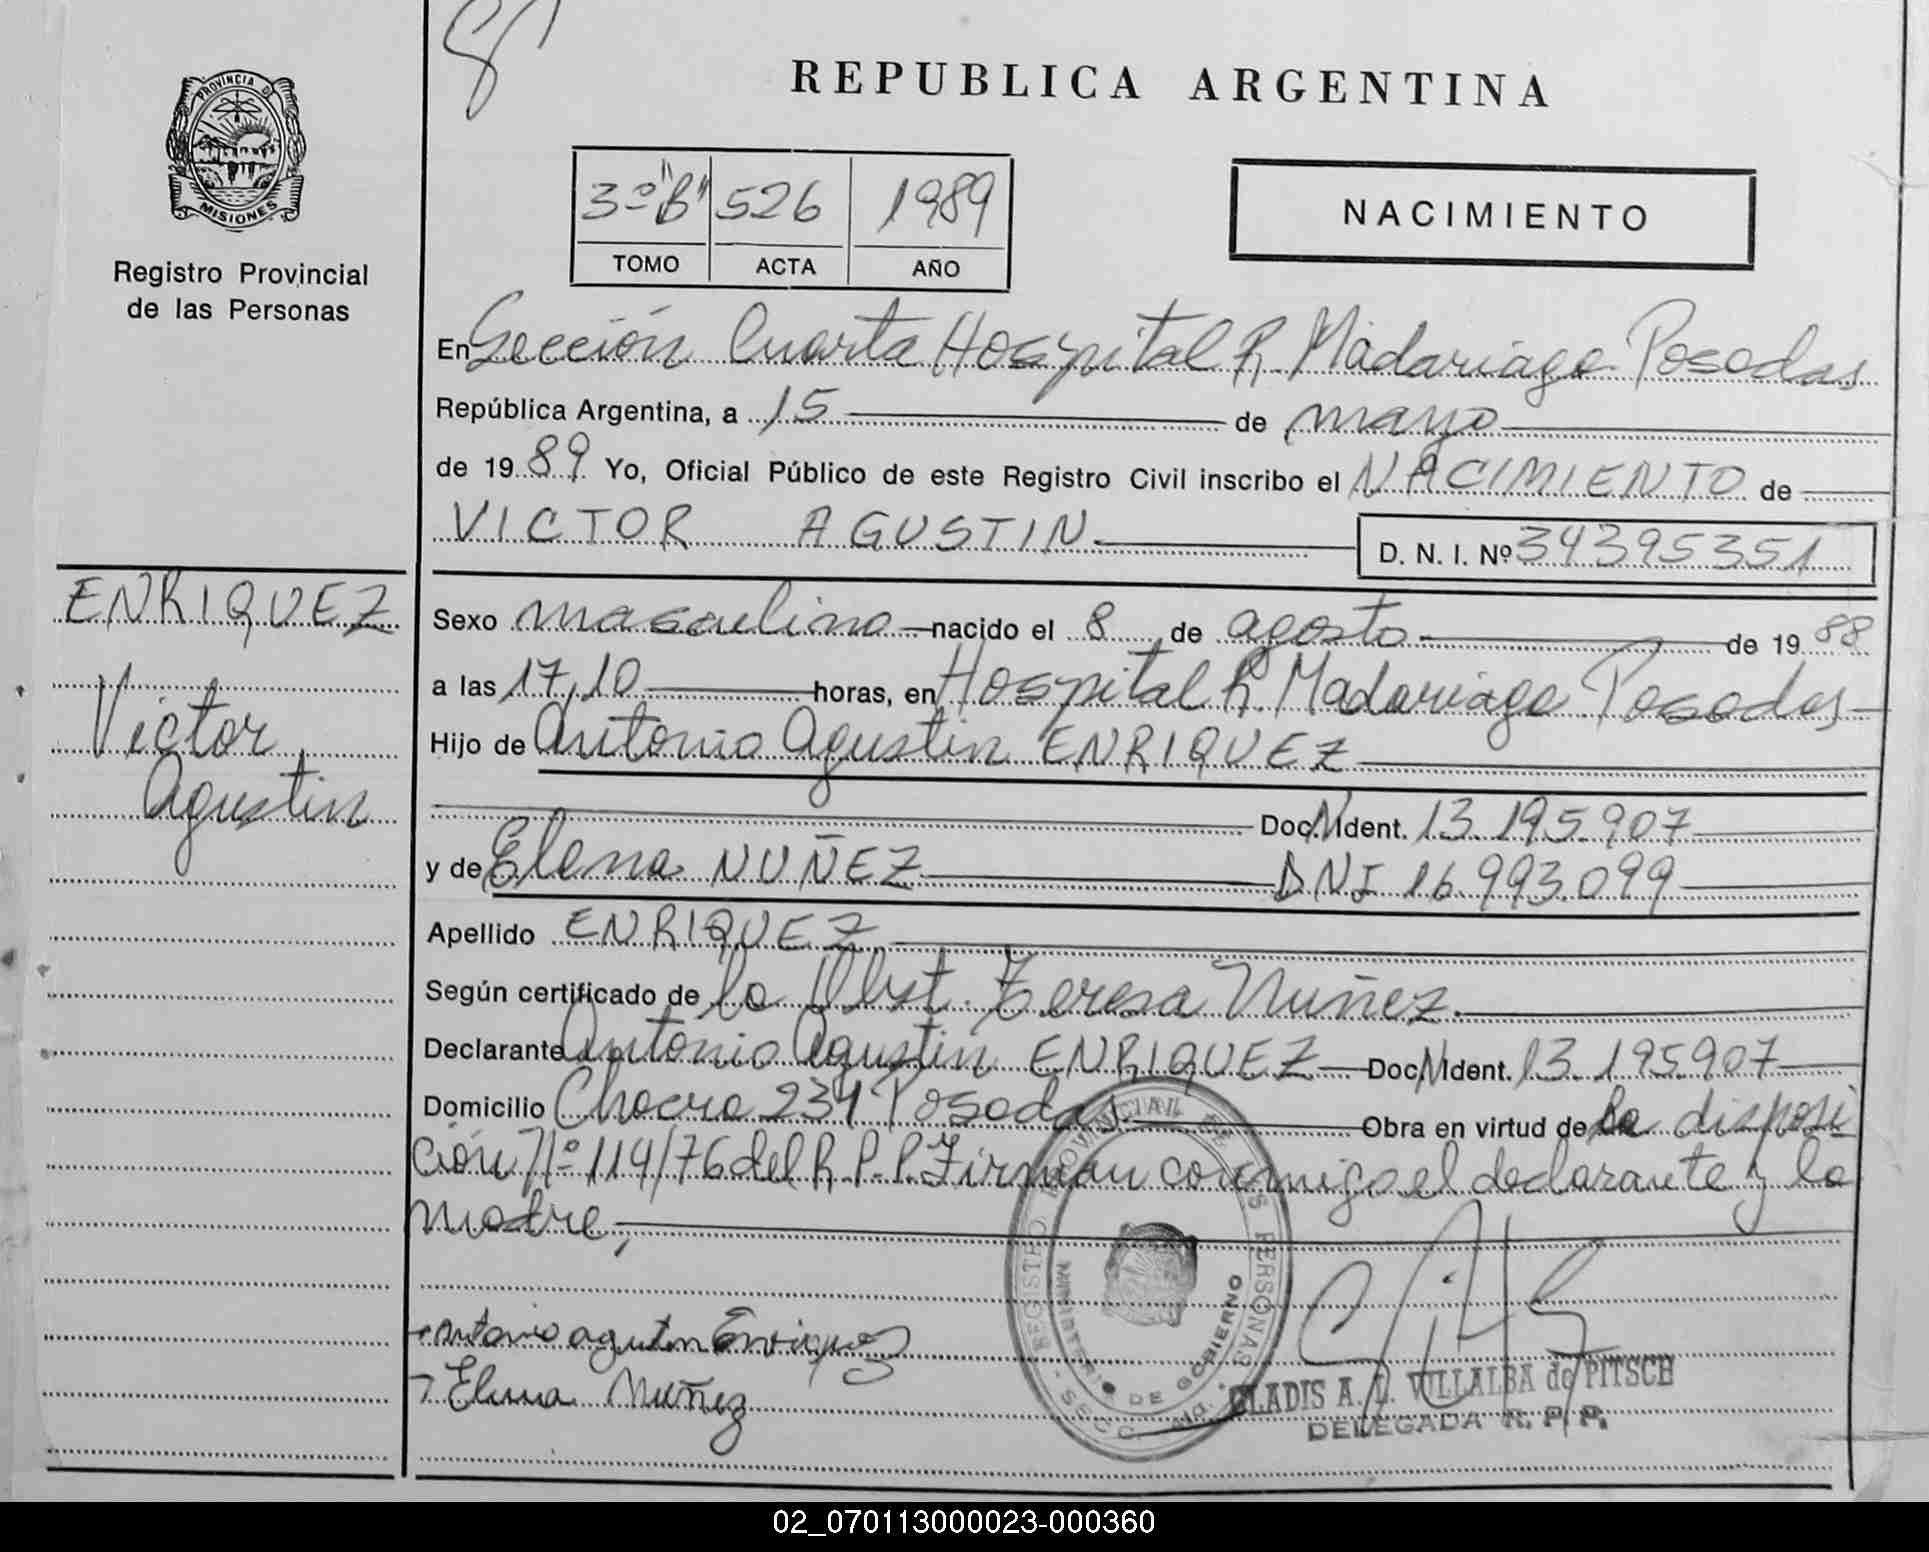 PROVINCIA D
MISIONES
Registro Provincial
de las Personas
REPUBLICA ARGENTINA
3º "B" 526 1989
TOMO ACTA AÑO
NACIMIENTO
En Sección Cuarta Hospital R. Madariaga Posadas
República Argentina, a 15 de mayo
de 1989 Yo, Oficial Público de este Registro Civil inscribo el NACIMIENTO de
VICTOR AGUSTIN
D. N. I. Nº 34395351
ENRIQUEZ
Victor
Agustin
Sexo masculino nacido el 8 de agosto de 1988
a las 17,10 horas, en Hospital R. Madariaga Posadas
Hijo de Antonio Agustin ENRIQUEZ
Doc. N Ident. 13.195.907
y de Elena NUÑEZ DNI 16.993.099
Apellido ENRIQUEZ
Según certificado de la Obst. Teresa Nuñez
Declarante Antonio Agustin ENRIQUEZ Doc. N Ident. 13.195.907
Domicilio Chacra 234 Posadas. Obra en virtud de la disposi
ción Nº 114/76 del R.P.P. Firman conmigo el declarante y la
madre,
Antonio agustin Enriquez
Elena Nuñez
REGISTRO PROVINCIAL DE LAS PERSONAS
DE GOBIERNO
SECC. 4ta.
GLADIS A. VILLALBA de PITSCH
DELEGADA R. P. P.
02_070113000023-000360